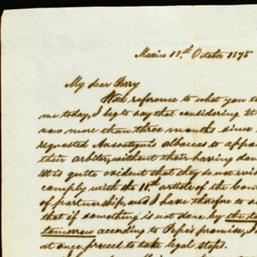 Mexico 13th October 1875
My dear Perry
With reference to what you to
me today, I beg to say that considering it
now more than three months since
requested Ansoategui's albaceas to appo
their arbiter, without their having don
it is quite evident that they do not wis
comply with the 11th article of the con
of partnership, and I have therefore to s
that if something is not done by
tomorrow according to Pepe's promise, I
at once proceed to take legal steps.